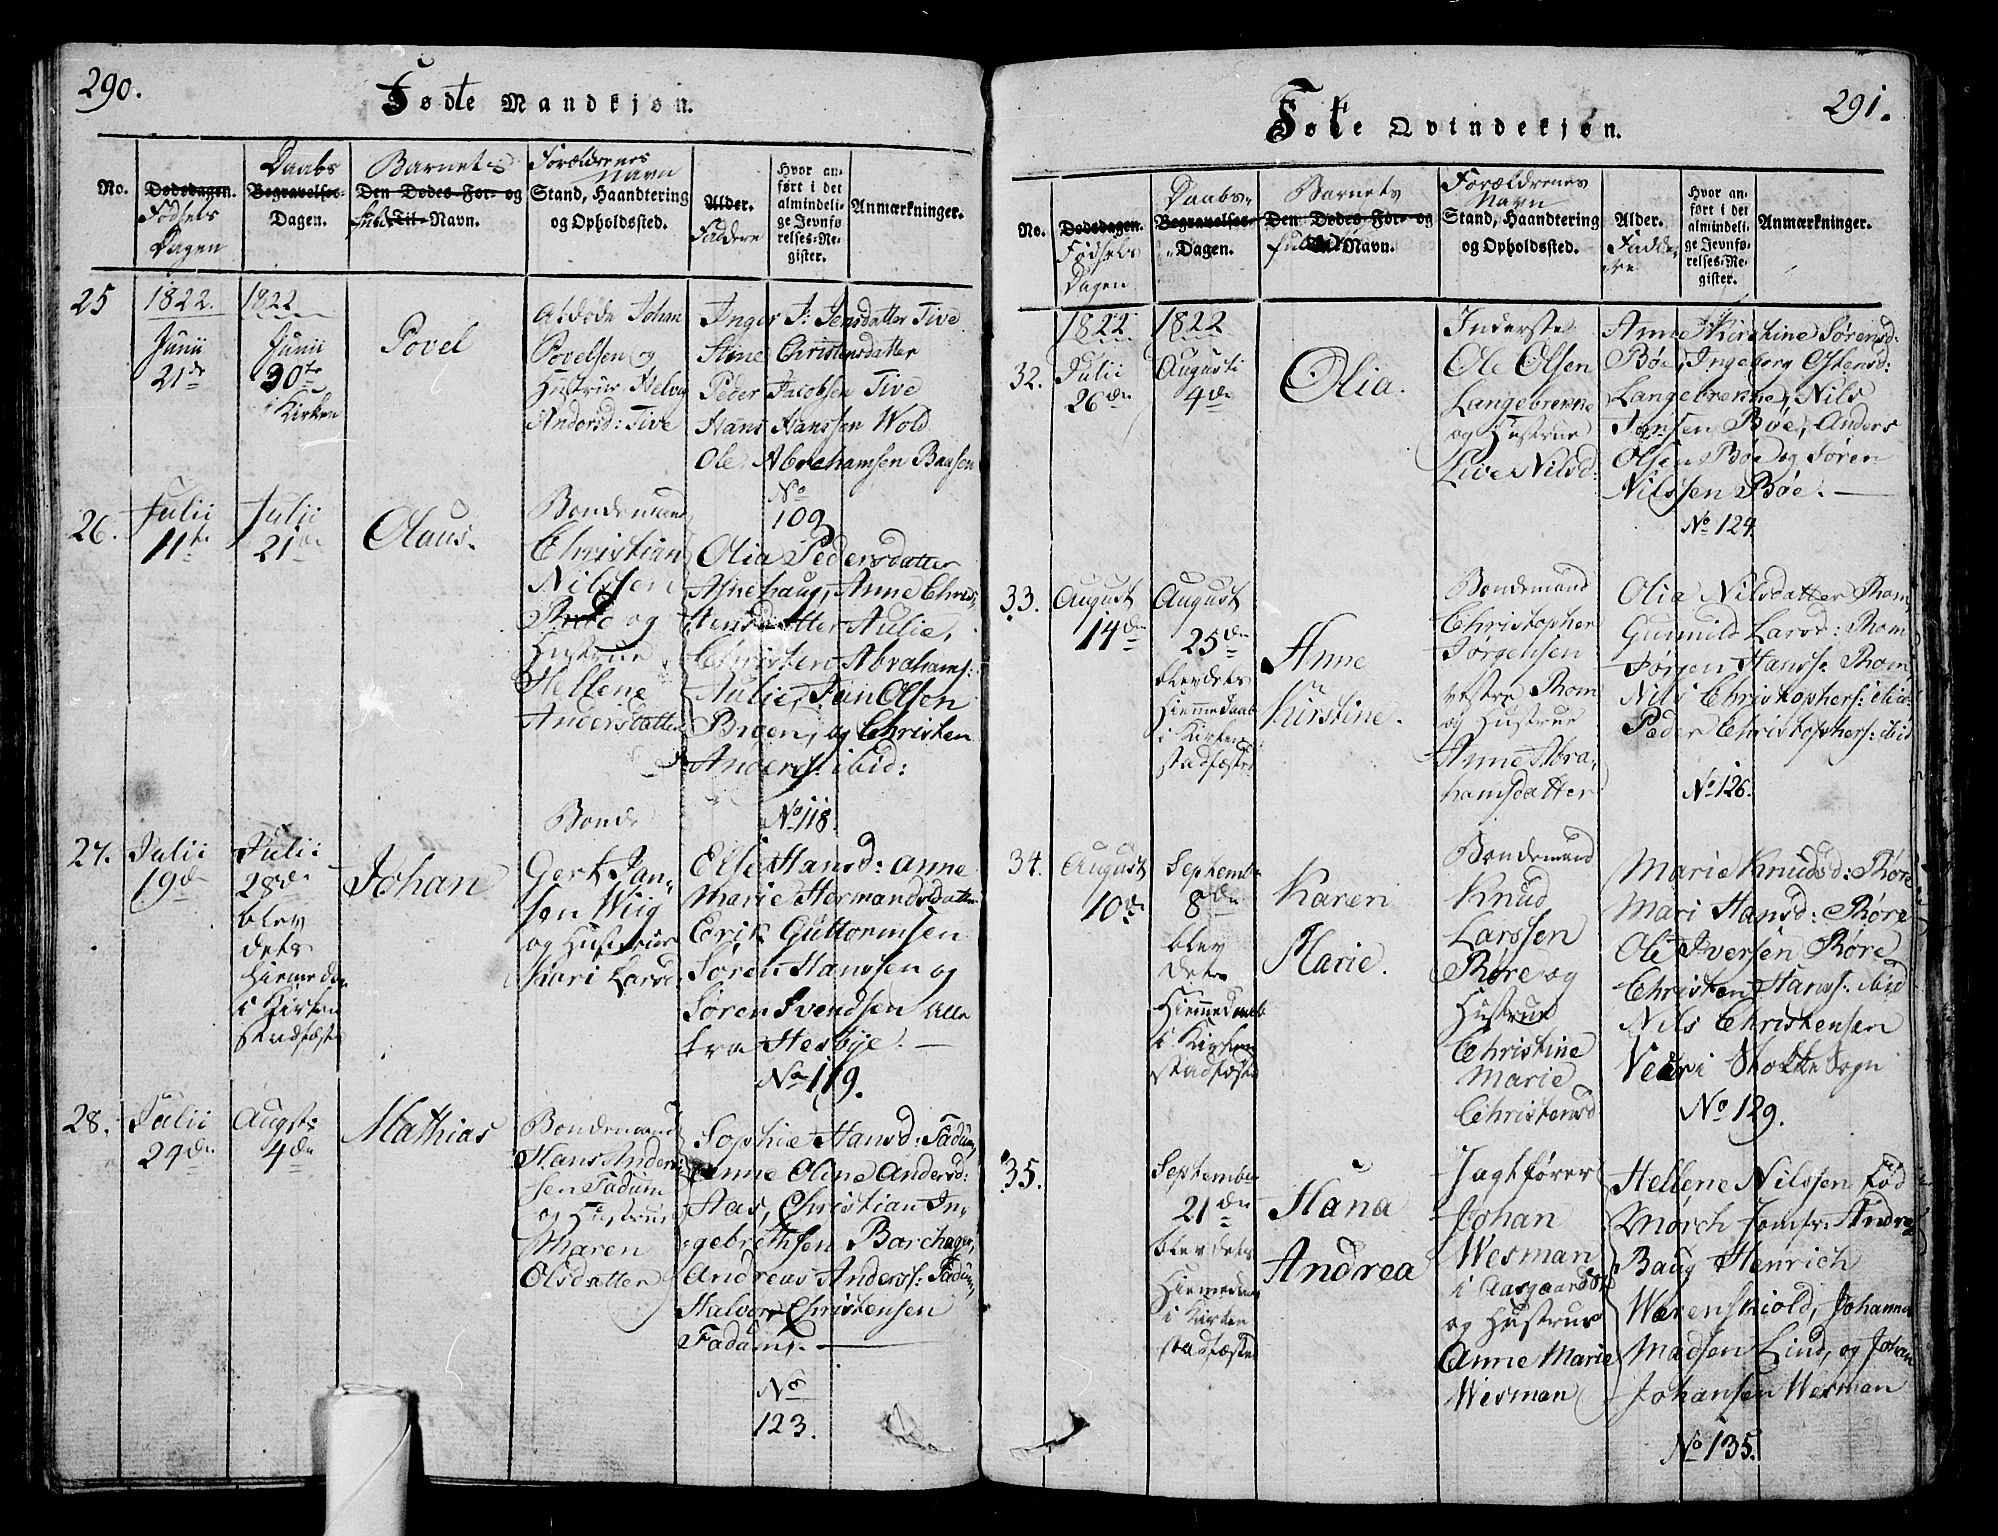 290.
Fødte Mandkjøn.
No.
Dødsdagen.
Fødsels
Dagen
Daabs
Begravelses-
Dagen.
Barnets
Den Dødes For- og
Til-Navn.
Forældrenes
Navn
Stand, Haandtering
og Opholdssted.
Alder.
Faddere
Hvor an-
ført i det
almindeli-
ge Jevnfø-
relses-Re-
gister.
Anmærkninger.
25
1822.
Junii
21de
1822
Junii
30te
i Kirken
Povel
Johan
Povelsen og
Hustrue Helvig
Andersd: Tive
Inger J: Jensdatter Tive
Stine Christensdatter
Peder Jacobsen Tive
Hans Hanssen Wold
Ole Abrahamsen Baasen
No
109
26.
Julii
11te
Julii
21de
Olaus.
Bondemand
Christian
Nilssen
og
Hustrue
Hellene
Andersdatter
Olia Pedersdatter
Asnehaug, Anne Chris-
tensdatter Aulie,
Christen Abrahams:
Aulie, Jan Olsen
Broen, og Christen
Anders: ibid:
No 118
27.
Julii
19de
Julii
28de
blev
dets
Hiemedaab
i Kirken
stadfæstet
Johan
Bonde
Gert Jan-
sen Wiig
og Hustrue
Kari Larsd:
Else Hansd: Anne
Marie Hormandsdatter
Erik Guttormsen
Søren Hanssen og
Søren Svendsen alle
fra Hesbye. —
No 119.
28.
Julii
29de
Augst:
4de
Mathias
Bondemand
Hans Ander-
sen Fadum
og Hustrue
Maren
Olsdatter
Sophie Hansd: Fadum,
Anne Oline Andersd:
Aas, Christian In-
gebrethsen Barchager,
Andreas Anderss: Fadum,
Halvor Christensen
Fadum. —
No
123.
291.
Føte Qvindekjøn.
No.
Dødsdagen.
Fødsels
Dagen
Daabs-
Begravelses-
Dagen.
Barnets
Den Dødes For- og
Navn.
Forældrenes
Navn
Stand, Haandtering
og Opholdssted.
Alder.
Fadde-
re
Hvor an-
ført i det
almindeli-
ge Jevnfø-
relses-Re-
gister.
Anmærkninger.
32.
1822
Julii
26de
1822
Augusti
4de
Olia.
Inderste
Ole Olsen
Langebrenne
og Hustrue
Live Nilsd:
Anne Kirstine Sørensd:
Bøe, Ingeborg Ostensd:
Langebrenne, Nils
Jansen Bøe, Anders
Olsen Bøe og Søren
Nilssen Bøe. —
No 124
33.
August
14de
August
25de
blev dets
Hiemmedaab
i Kirken
stadfæstet
Anne
Kirstine.
Bondemand
Christopher
Jørgensen
vestre Rom
og Hustrue
Anne Abra-
hamsdatter
Olia Nilsdatter Rom,
Gunnild Larsd: Rom
Jørgen Hanss: Rom,
Nils Christophers: ibid:
Peder Christophers: ibid
No 126.
34.
August
10de
Septembr
8de
blev
dets
Hiemmedaab
i Kirken
stadfæstet
Karen
Marie.
Bondemand
Knud
Larssen
Røre og
Hustrue
Christine
Marie
Christensd
Marie Knudsd: Røre
Mari Hansd: Røre
Ole Iversen Røre
Christen Hanss: ibid
Nils Christensen
Vear i Stokke Sogn
No 129.
35.
Septembr
21de
blev dets
Hiemedaab
i Kirken
stadfæstet
Hana
Andrea
Jagtfører
Johan
Wesman
i Aasgaardstr
og Hustrue
Anne Marie
Wesman
Hellene Nilssen fød
Mørch Jomfr: Andrea
Baug Henrich
Wærenskiold, Johannes
Madsen Lind, og Johan
Johansen Wesman
No 135.